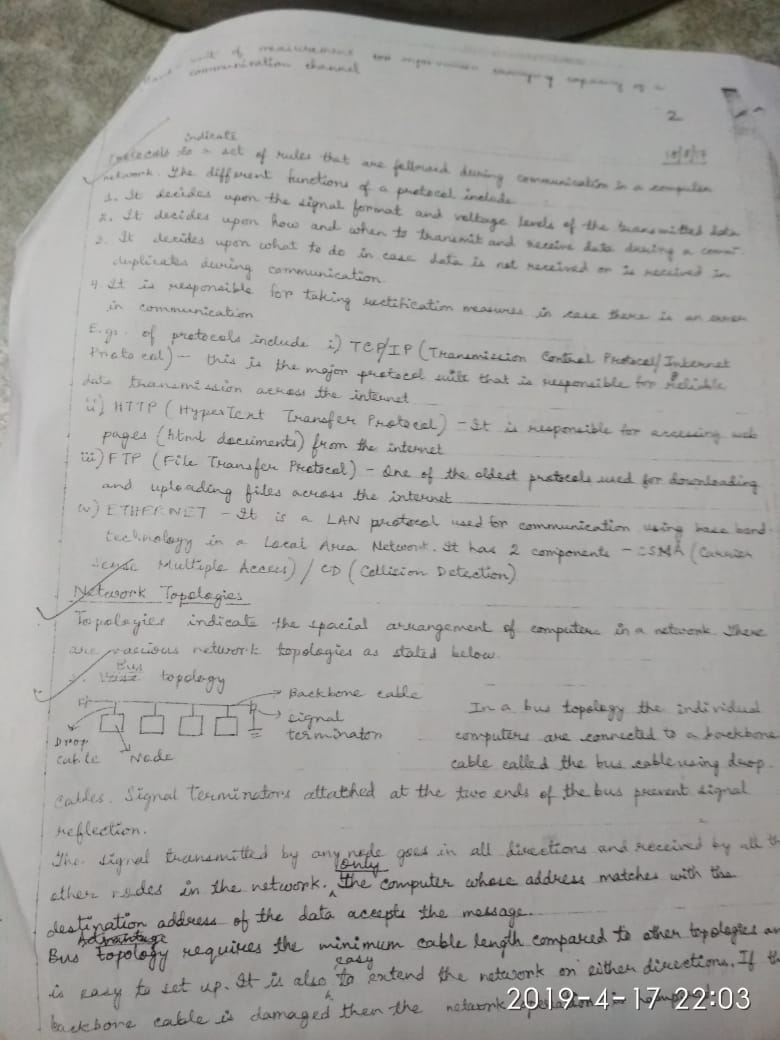 unit of measurement for information carrying capacity of a
communication channel
2
indicate
Protocols is a set of rules that are followed during communication in a computer
network. The different functions of a protocol include
1. It decides upon the signal format and voltage levels of the transmitted data
2. It decides upon how and when to transmit and receive data during a comm.
3. It decides upon what to do in case data is not received or is received in
duplicates during communication.
4. It is responsible for taking rectification measures in case there is an error
in communication
E.gs. of protocols include i) TCP/IP (Transmission Control Protocol/Internet
Protocol) - this is the major protocol suite that is responsible for reliable
data transmission across the internet
ii) HTTP (HyperText Transfer Protocol) - It is responsible for accessing web
pages (html documents) from the internet
iii) FTP (File Transfer Protocol) - One of the oldest protocols used for downloading
and uploading files across the internet
iv) ETHERNET - It is a LAN protocol used for communication using base band
technology in a Local Area Network. It has 2 components - CSMA (Carrier
Sense Multiple Access) / CD (Collision Detection)
Network Topologies
Topologies indicate the spacial arrangement of computers in a network. There
are various network topologies as stated below.
Bus
topology
Backbone cable
signal
terminator
Drop
cable
Node
In a bus topology the individual
computers are connected to a backbone
cable called the bus cable using drop
cables. Signal terminators attached at the two ends of the bus prevent signal
reflection.
The signal transmitted by any node goes in all directions and received by all the
only
other nodes in the network. The computer whose address matches with the
destination address of the data accepts the message.
Advantage
Bus topology requires the minimum cable length compared to other topologies an
easy
is easy to set up. It is also to extend the network on either directions. If th
backbone cable is damaged then the network
2019-4-17 22:03